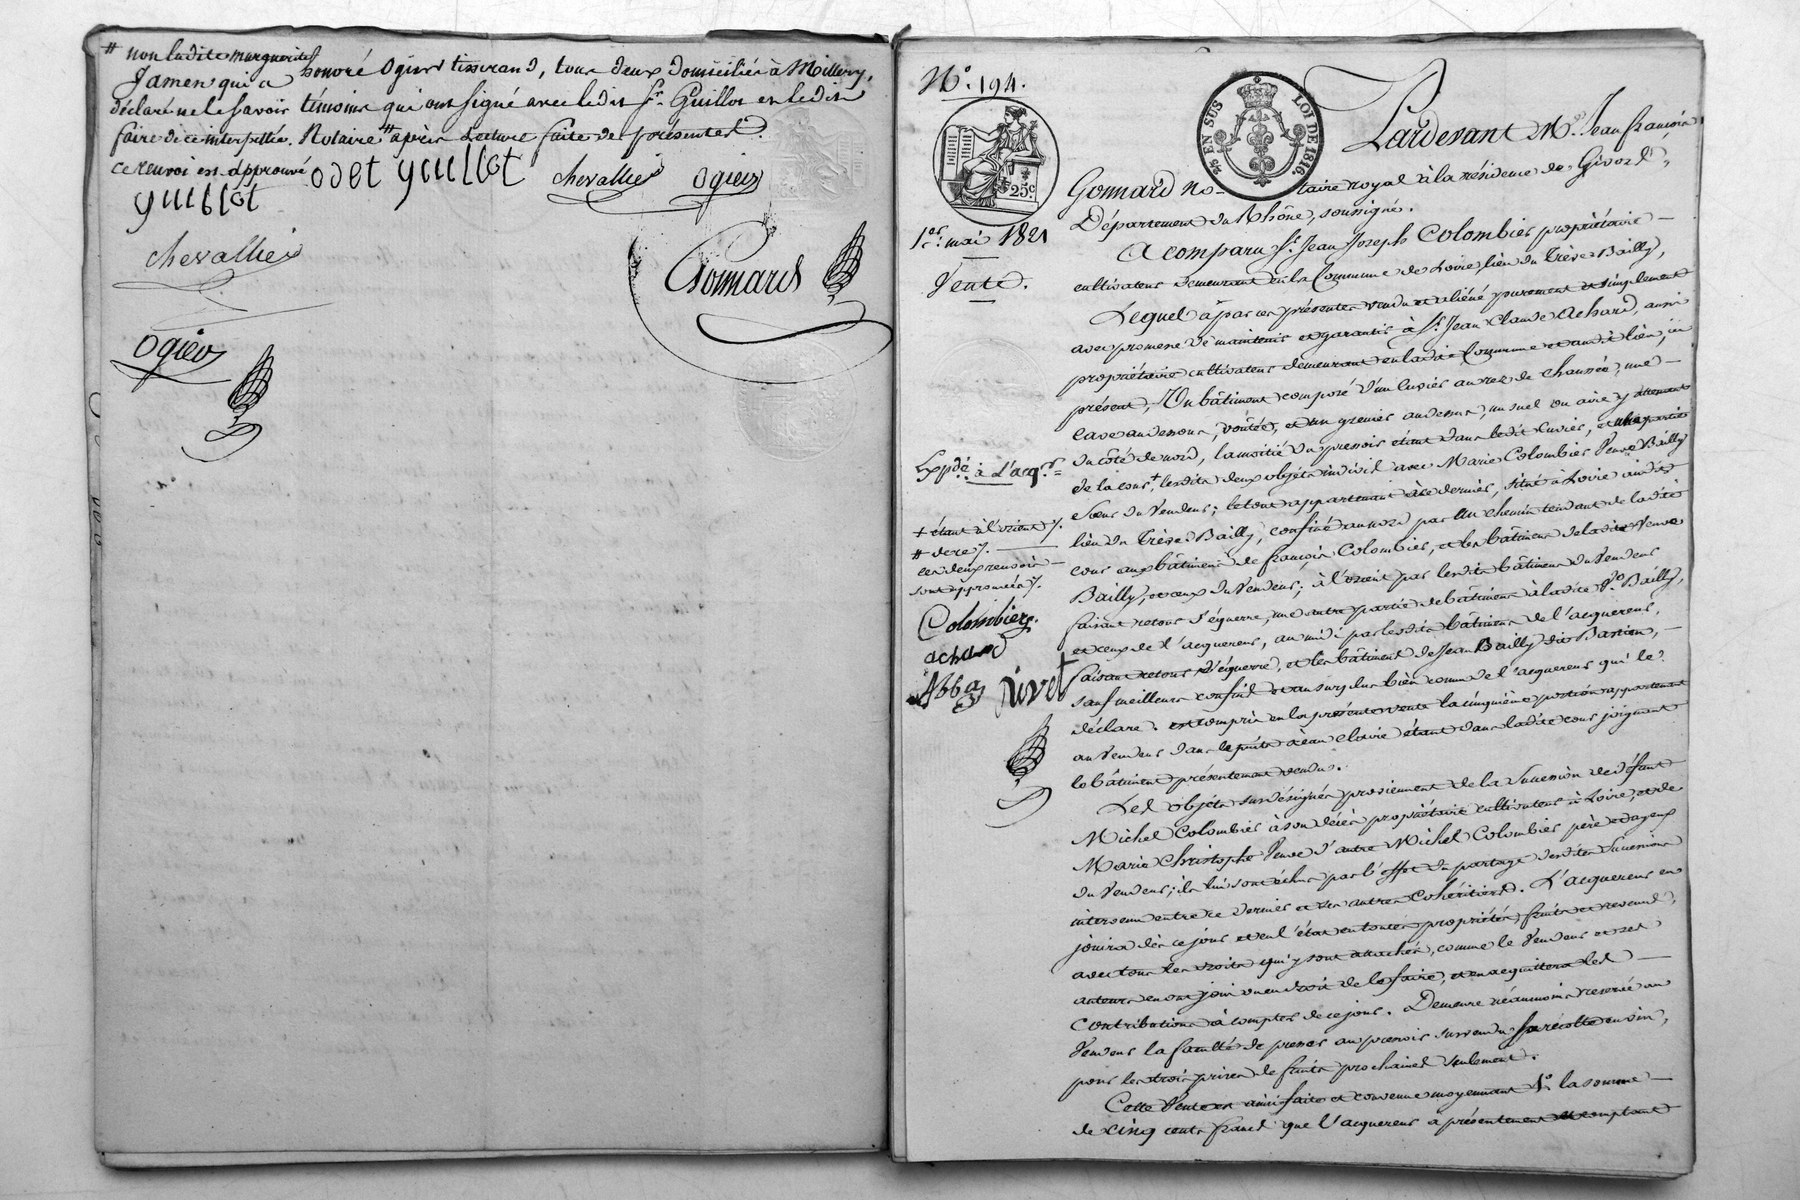 # non ladite marguerite
Jamen qui a
déclaré ne le savoir
faire de ce interpellée.
ce renvoi est approuvé
honoré Ogier tisserand, tous deux domiciliés à Millery,
témoins qui ont signé avec ledit Sr. Guillot et ledit
Notaire # après Lecture faite des présentes.
odet guillot
chevallier
ogier
guillot
chevallier
Gonnard
ogier
N.° 194.
25c
25 EN SUS
LOI DE 1816
1er mai 1821
Vente.
Expdé. à L'acqr.
+ étant à l'orient %.
# de ce %.
ces deux renvois
sont approuvés %.
Colombier.
achard
Abba
rivet
Pardevant Me. Jean françois
Gonnard notaire royal à la résidence de Givors,
Département du Rhône, soussigné.
A comparu Sr. Jean Joseph Colombier propriétaire
cultivateur demeurant en la Commune de Loire lieu du Trève Bailly,
Lequel à par ces présentes vendu et aliéné purement et simplement
avec promesse de maintenir et garantir à Sr. Jean Claude Achard, aussi
propriétaire cultivateur demeurant en ladite Commune et audit lieu, ici
présent, Un bâtiment composé d'un cuvier au rez de chaussée, une
cave au dessous, voûtée, et un grenier au dessus, un suel ou aire y attenant
du côté de nord, la moitié du pressoir étant dans ledit cuvier, et une partie
de la cour +, lesdits deux objets indivis avec Marie Colombier Veuve Bailly
Sœur du Vendeur; le tout appartenant à ce dernier, situé à Loire audit
lieu du Trève Bailly, confiné au nord par un chemin tendant de ladite
cour aux bâtiments de françois Colombier, et les bâtiments de ladite Veuve
Bailly, et ceux du Vendeur; à l'orient par lesdits bâtiments du Vendeur
faisant retour d'équerre, une autre partie de bâtiments à ladite Ve. Bailly,
et ceux de l'acquereur, au midi par lesdits bâtiments de l'acquereur,
faisant retour d'équerre, et les bâtiments de Jean Bailly dit Bastien,
sauf meilleurs confins et au surplus bien connus de l'acquereur qui le
déclare. est compris en la présente vente la cinquième portion appartenant
au Vendeur dans le puits à eau claire étant dans ladite cour joignant
le bâtiment présentement vendu.
Les objets sus désignés proviennent de la Succession de défunt
Michel Colombier à son décès propriétaire cultivateur à Loire, et de
Marie Christophe Veuve d'autre Michel Colombier père et ayeux
du Vendeur; ils lui sont échus par l'effet du partage desdites Successions
intervenu entre ce dernier et ses autres Cohéritiers. L'acquereur en
jouira dès ce jour et en l'état en toutes propriétés, fruits et revenus,
avec tous les droits qui y sont attachés, comme le Vendeur et ses
auteurs en ont joui ou eu droit de le faire, et en acquittera les
Contributions à compter de ce jour. Demeure néanmoins réservée au
Vendeur la faculté de presser au pressoir susvendu sa récolte en vin,
pour les trois prises de fruits prochaines seulement.
Cette Vente est ainsi faite et convenue moyennant 1° la somme
de cinq cents francs que l'acquereur a présentement et comptant